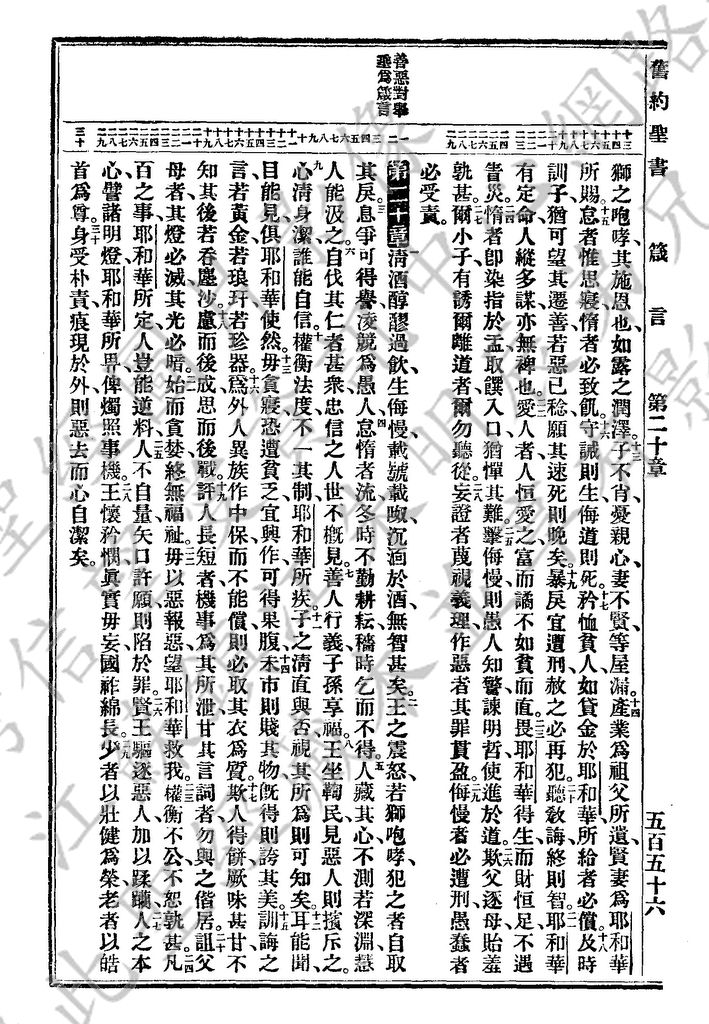 舊約聖書 箴言 第二十章 五百五十六
獅之咆哮其施恩也如露之潤澤子不肖憂親心妻不賢等屋漏產業爲祖父所遺賢妻爲耶和華
所賜怠者惟思寢惰者必致飢守誡則生侮道則死矜恤貧人如貸金於耶和華所給者必償及時
訓子猶可望其遷善若惡已稔願其速死則晚矣暴戾宜遭刑赦之必再犯聽敎誨終則智耶和華
有定命人縱多謀亦無裨也愛人者人恒愛之富而譎不如貧而直畏耶和華得生而財恒足不遇
眚災惰者卽染指於盂取饌入口猶憚其難擊侮慢則愚人知警諫明哲使進於道欺父逐母貽羞
孰甚爾小子有誘爾離道者爾勿聽從妄證者蔑視義理作惡者其罪貫盈侮慢者必遭刑愚蠢者
必受責
善惡對舉
垂爲箴言
第二十章清酒醇醪過飲生侮慢載號載呶沉湎於酒無智甚矣王之震怒若獅咆哮犯之者自取
其戾息爭可得譽淩競爲愚人怠惰者流冬時不勤耕耘穡時乞而不得人藏其心不測若深淵慧
人能汲之自伐其仁者甚衆忠信之人世不概見善人行義子孫享福王坐鞫民見惡人則擯斥之
心清身潔誰能自信權衡法度不一其制耶和華所疾子之清直與否視其所爲則可知矣耳能聞
目能見俱耶和華使然毋貪寢恐遭貧乏宜興作可得果腹未市則賤其物旣得則誇其美訓誨之
言若黃金若琅玕若珍器爲外人異族作中保而不能償則必取其衣爲質欺人得餅厥味甚甘不
知其後若吞塵沙慮而後成思而後戰評人長短者機事爲其所泄甘其言詞者勿與之偕居詛父
母者其燈必滅其光必暗始而貪婪終無福祉毋以惡報惡望耶和華救我權衡不公不恕孰甚凡
百之事耶和華所定人豈能逆料人不自量矢口許願則陷於罪賢王驅逐惡人加以蹂躪人之本
心譬諸明燈耶和華所畀俾燭照事機王懷矜憫眞實毋妄國祚綿長少者以壯健爲榮老者以皓
首爲尊身受朴責痕現於外則惡去而心自潔矣